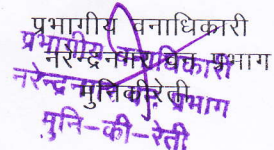 प्रभागीय वनाधिकारी
नरेन्द्रनगर वन प्रभाग
मुनिकीरेती
प्रभागीय वनाधिकारी
नरेन्द्रनगर वन प्रभाग
मुनि-की-रेती